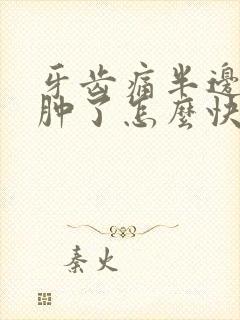 牙齿痛半邊
肿了怎麼快
秦火